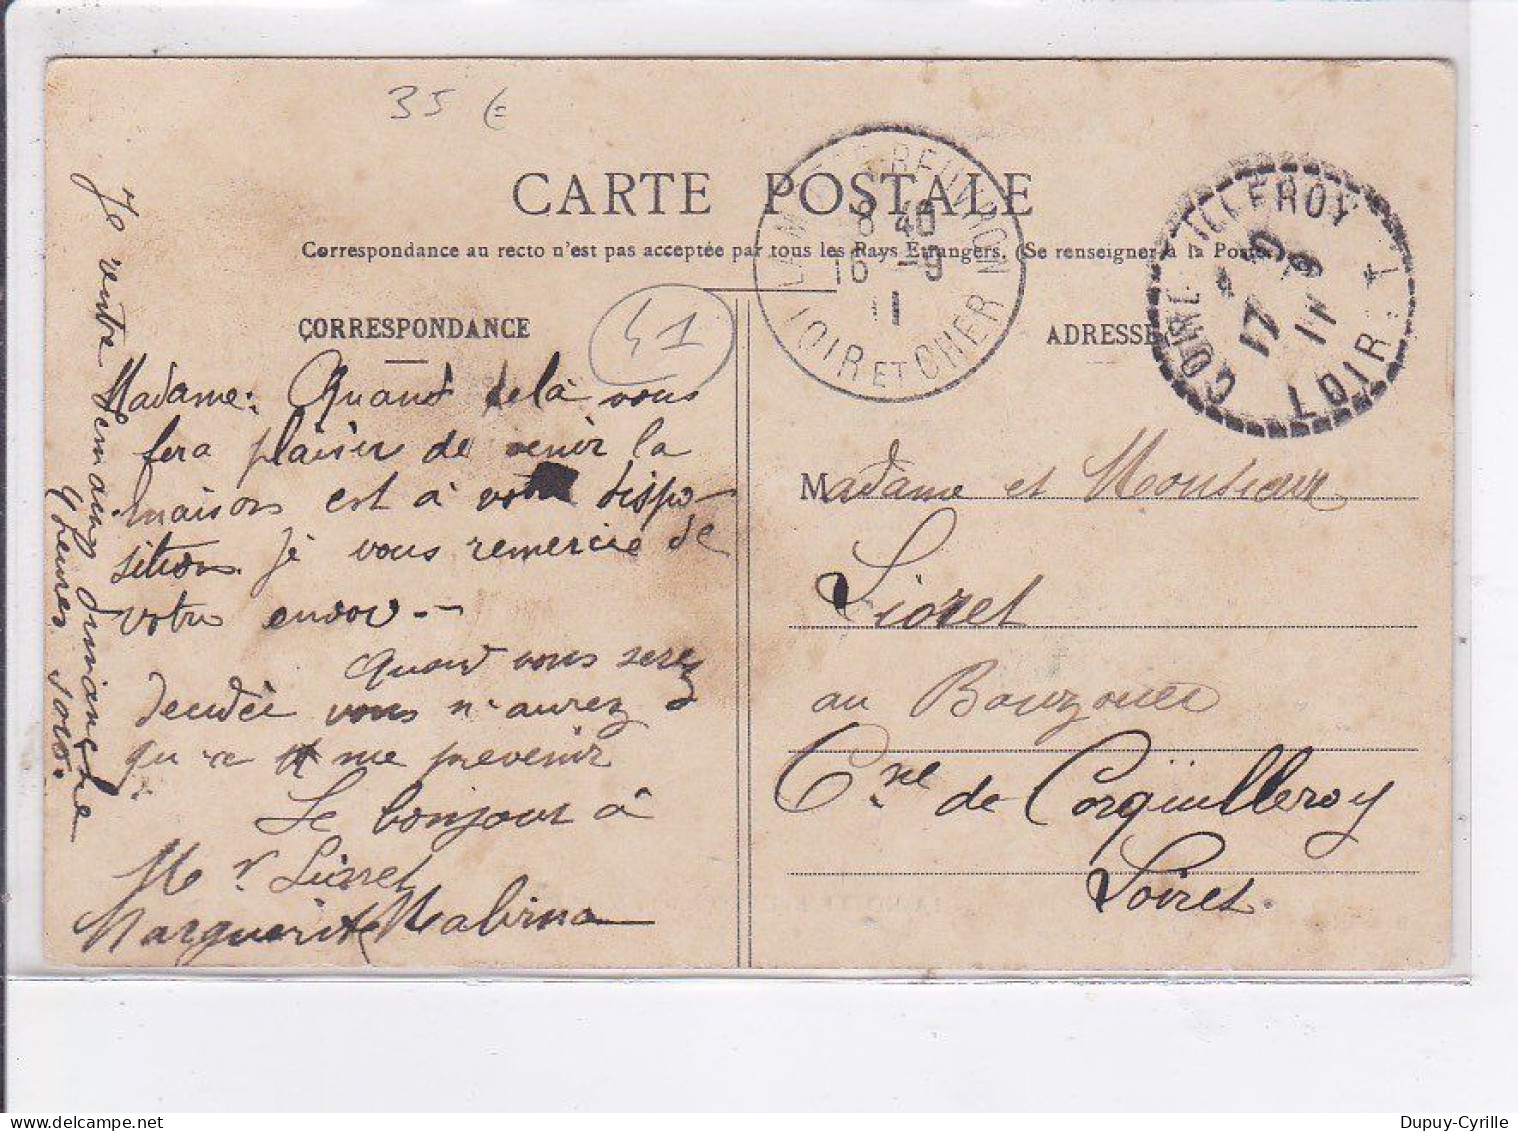 35 €
CARTE POSTALE
Correspondance au recto n'est pas acceptée par tous les Pays Etrangers. (Se renseigner à la Poste
CORRESPONDANCE
41
ADRESSE
LAMOTTE-BEUVRON
8 40
16 -9
11
LOIR ET CHER
ILLEROY
17 -9
11
LOIRET
Madame: Quand cela vous
fera plaisir de venir la
maison est à votre dispo-
sition je vous remercie de
votre envoi -
Quand vous serez
decidée vous n'aurez
qu'a me prevenir
Le bonjour à
Mr Lioret
Marguerite
Je rentre Semaine dimanche
4 heures soir.
Madame et Monsieur
Lioret
au Bouzouer
Cne de Corquilleroy
Loiret.
Dupuy-Cyrille